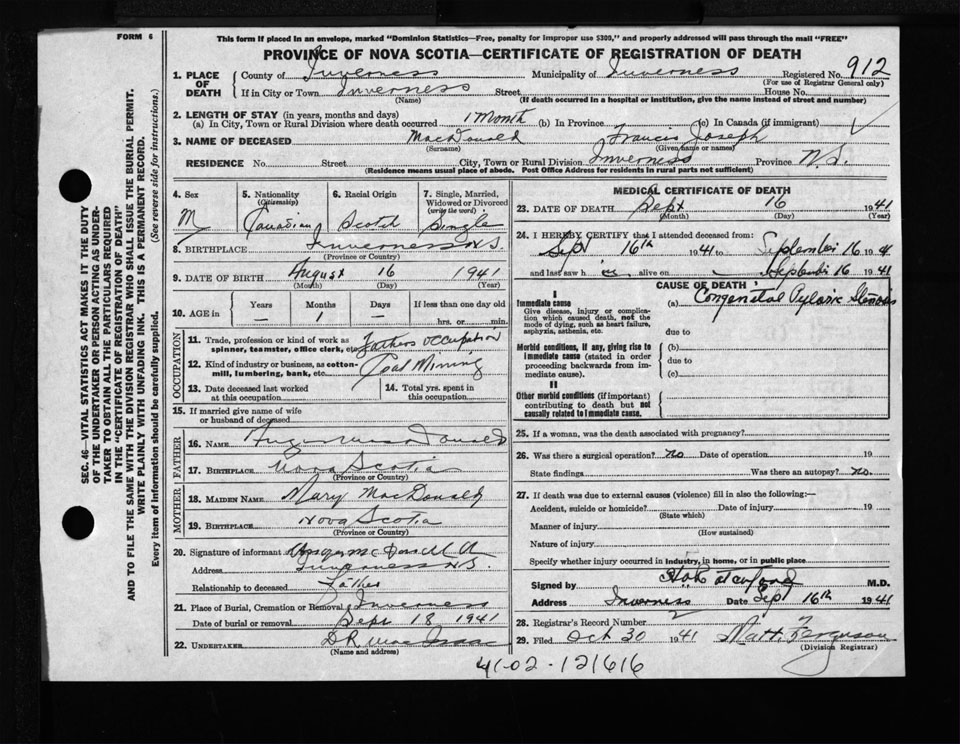 FORM 6
This form if placed in an envelope, marked "Dominion Statistics—Free, penalty for improper use $300," and properly addressed will pass through the mail "FREE"
PROVINCE OF NOVA SCOTIA—CERTIFICATE OF REGISTRATION OF DEATH
1. PLACE OF DEATH
County of Inverness Municipality of Inverness Registered No. 912
(For use of Registrar General only)
If in City or Town Inverness Street House No.
(Name) (If death occurred in a hospital or institution, give the name instead of street and number)
2. LENGTH OF STAY (in years, months and days)
(a) In City, Town or Rural Division where death occurred 1 month (b) In Province (c) In Canada (if immigrant)
3. NAME OF DECEASED MacDonald Francis Joseph
(Surname) (Given name or names)
RESIDENCE No. Street City, Town or Rural Division Inverness Province N.S.
(Residence means usual place of abode. Post Office Address for residents in rural parts not sufficient)
4. Sex
M
5. Nationality
(Citizenship)
Canadian
6. Racial Origin
Scotch
7. Single, Married, Widowed or Divorced
(write the word)
Single
8. BIRTHPLACE Inverness N.S.
(Province or Country)
9. DATE OF BIRTH August 16 1941
(Month) (Day) (Year)
10. AGE in
Years Months Days If less than one day old
— 1 — hrs. or min.
OCCUPATION
11. Trade, profession or kind of work as spinner, teamster, office clerk, etc. Fathers occupation
12. Kind of industry or business, as cotton-mill, lumbering, bank, etc. Coal Mining
13. Date deceased last worked at this occupation
14. Total yrs. spent in this occupation
15. If married give name of wife or husband of deceased
FATHER
16. NAME Angus MacDonald
17. BIRTHPLACE Nova Scotia
(Province or Country)
MOTHER
18. MAIDEN NAME Mary MacDonald
19. BIRTHPLACE Nova Scotia
(Province or Country)
20. Signature of informant
Address Inverness N.S.
Relationship to deceased Father
21. Place of Burial, Cremation or Removal Inverness
Date of burial or removal Sept 18 1941
22. UNDERTAKER D R MacIsaac
(Name and address)
MEDICAL CERTIFICATE OF DEATH
23. DATE OF DEATH Sept 16 1941
(Month) (Day) (Year)
24. I HEREBY CERTIFY that I attended deceased from:
Sept 16th 1941 to September 16 1941
and last saw h alive on September 16 1941
CAUSE OF DEATH
I
Immediate cause
Give disease, injury or complication which caused death, not the mode of dying, such as heart failure, asphyxia, asthenia, etc.
(a) Congenital Pyloric Stenosis
due to
Morbid conditions, if any, giving rise to immediate cause (stated in order proceeding backwards from immediate cause).
(b)
due to
(c)
II
Other morbid conditions (if important) contributing to death but not causally related to immediate cause.
25. If a woman, was the death associated with pregnancy?
26. Was there a surgical operation? no Date of operation 19
State findings Was there an autopsy? no.
27. If death was due to external causes (violence) fill in also the following:—
Accident, suicide or homicide? Date of injury 19
(State which)
Manner of injury
(How sustained)
Nature of injury
Specify whether injury occurred in Industry, in home, or in public place
Signed by M.D.
Address Inverness Date Sept 16th 1941
28. Registrar's Record Number 2
29. Filed Oct 30 1941 Matt. Ferguson
(Division Registrar)
41-02-121616
SEC. 46—VITAL STATISTICS ACT MAKES IT THE DUTY
OF THE UNDERTAKER OR PERSON ACTING AS UNDER-
TAKER TO OBTAIN ALL THE PARTICULARS REQUIRED
IN THE "CERTIFICATE OF REGISTRATION OF DEATH"
AND TO FILE THE SAME WITH THE DIVISION REGISTRAR WHO SHALL ISSUE THE BURIAL PERMIT.
WRITE PLAINLY WITH UNFADING INK. THIS IS A PERMANENT RECORD.
Every item of information should be carefully supplied. (See reverse side for instructions.)